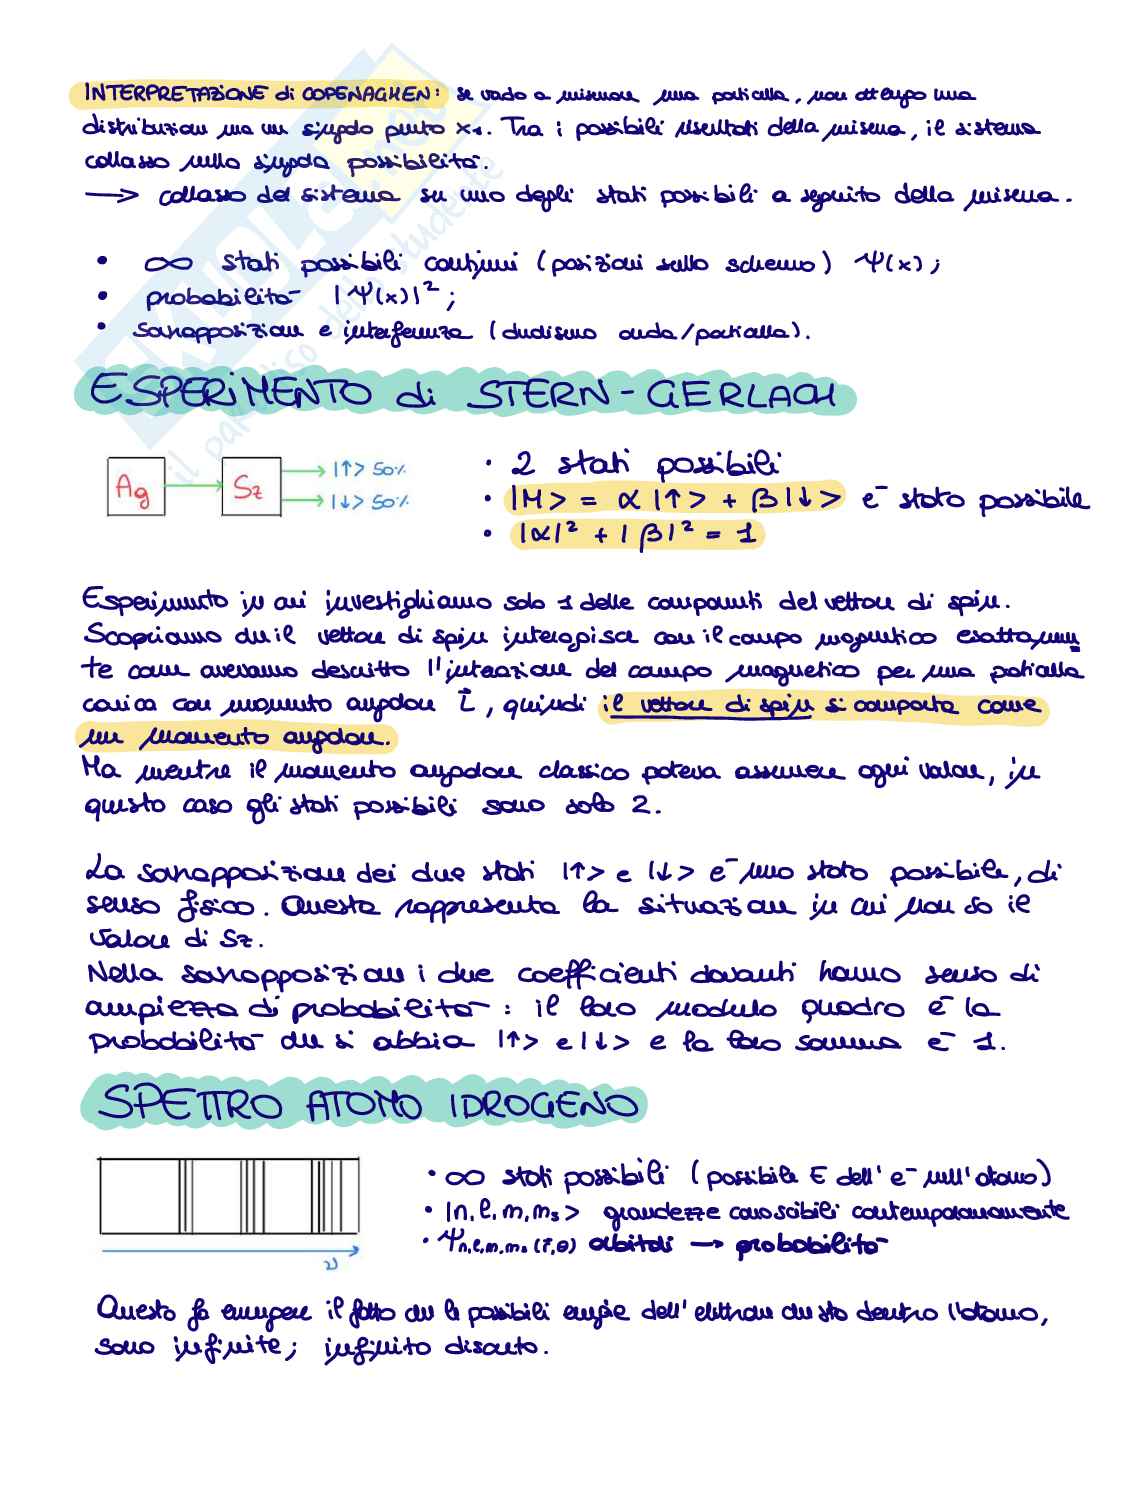 INTERPRETAZIONE di COPENAGHEN: se vado a misurare una particella, non ottengo una
distribuzione ma un singolo punto x₁. Tra i possibili risultati della misura, il sistema
collassa nella singola possibilità.
→ collasso del sistema su uno degli stati possibili a seguito della misura.
• ∞ stati possibili continui (posizioni sullo schermo) Ψ(x);
• probabilità |Ψ(x)|²;
• sovrapposizione e interferenza (dualismo onda/particella).
ESPERIMENTO di STERN-GERLACH
Ag
Sz
|↑> 50%
|↓> 50%
• 2 stati possibili
• |M> = α |↑> + β |↓> è stato possibile
• |α|² + |β|² = 1
Esperimento in cui investighiamo solo 1 delle componenti del vettore di spin.
Scopriamo che il vettore di spin interagisce con il campo magnetico esattamen
te come avevamo descritto l'interazione del campo magnetico per una particella
carica con momento angolare L, quindi il vettore di spin si comporta come
un momento angolare.
Ma mentre il momento angolare classico poteva assumere ogni valore, in
questo caso gli stati possibili sono solo 2.
La sovrapposizione dei due stati |↑> e |↓> è uno stato possibile, di
senso fisico. Questa rappresenta la situazione in cui non so il
valore di Sz.
Nella sovrapposizione i due coefficienti davanti hanno senso di
ampiezza di probabilità: il loro modulo quadro è la
probabilità che si abbia |↑> e |↓> e la loro somma è 1.
SPETTRO ATOMO IDROGENO
ν
• ∞ stati possibili (possibile E dell'e⁻ nell'atomo)
• |n, l, m, ms> grandezze conoscibili contemporaneamente
• Ψn,l,m,ms (r,θ) orbitali → probabilità
Questo fa emergere il fatto che le possibili energie dell'elettrone che sta dentro l'atomo,
sono infinite; infinito discreto.
SKUOLA.net
il paradiso dello studente